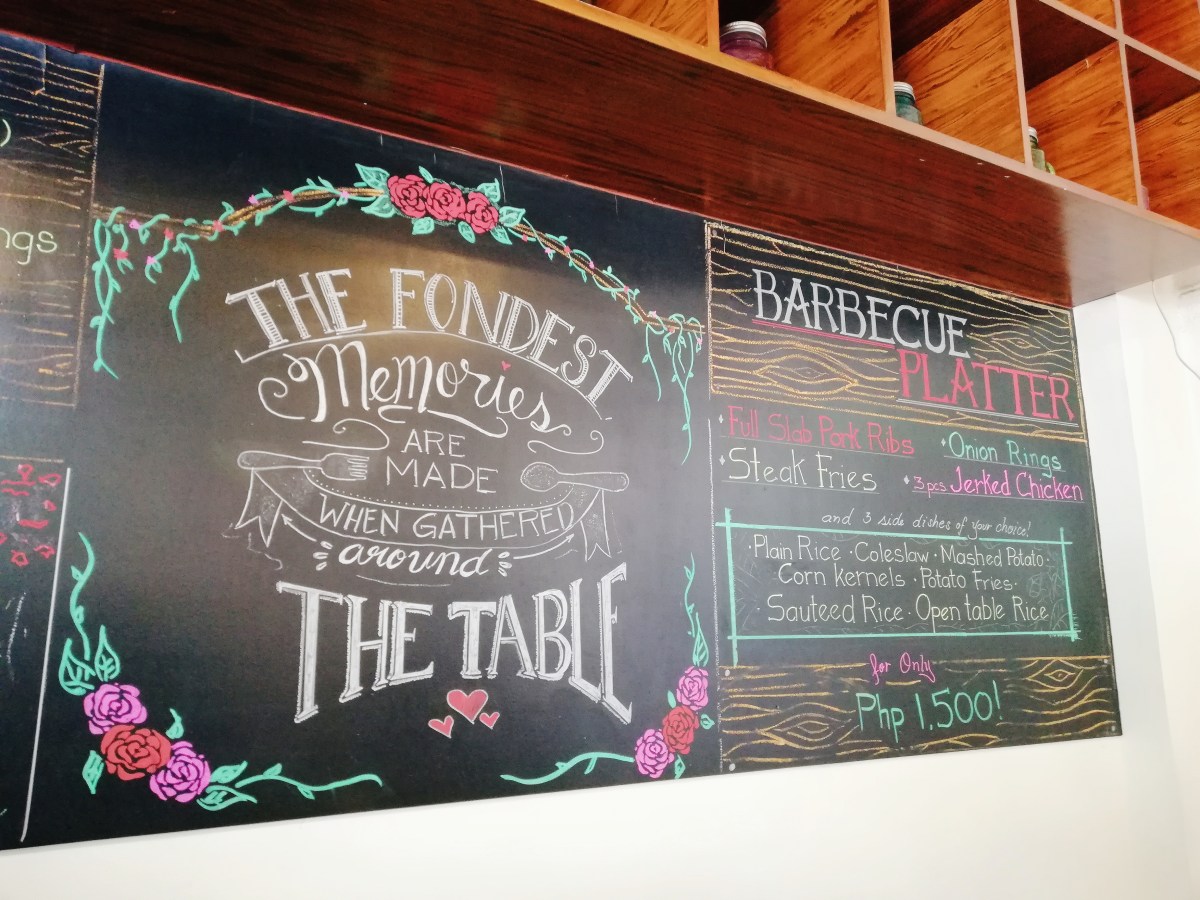 THE FONDEST
Memories
ARE
MADE
WHEN GATHERED
around
THE TABLE
BARBECUE
PLATTER
Full Slab Pork Ribs
Onion Rings
Steak Fries
3 pcs Jerked Chicken
and 3 side dishes of your choice!
·Plain Rice ·Coleslaw ·Mashed Potato·
Corn kernels ·Potato Fries·
·Sauteed Rice ·Open table Rice
for Only
Php 1,500!